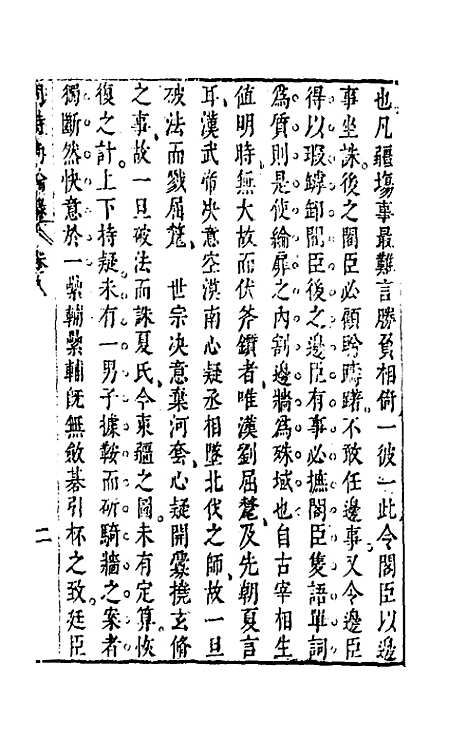 也凡疆場事最難言勝負相倚一彼一此令閣臣以邊
事坐誅後之閣臣必顧盻躊躇不敢任邊事又令邊臣
得以瑕罅卸閣臣後之邊臣有事必摭閣臣隻語單詞
為質則是使綸扉之內割邊牆為殊域也自古宰相生
值明時無大故而伏斧鑕者唯漢劉屈氂及先朝夏言
耳漢武帝决意空漠南心疑丞相墜北伐之師故一旦
破法而戮屈氂 世宗决意棄河套心疑開釁撓玄脩
之事故一旦破法而誅夏氏今東疆之圖未有定算恢
復之計上下持疑未有一男子據鞍而斫騎牆之案者
獨斷然快意於一紫輔紫輔旣無斂棊引杯之致廷臣
二